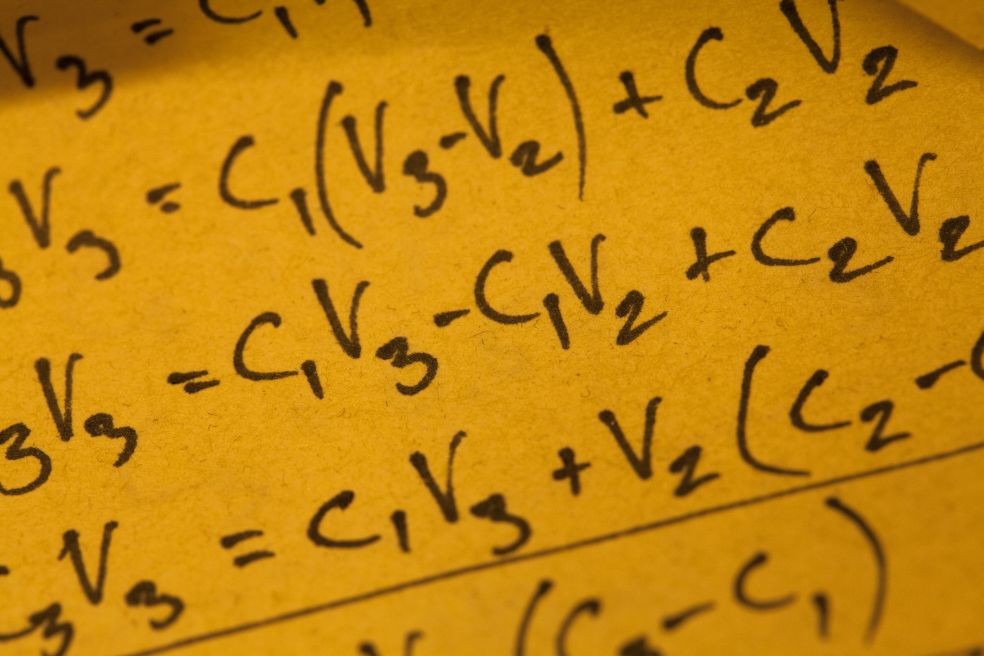 V₃ = C₁
₃V₃ = C₁(V₃-V₂) + C₂V₂
₃V₃ = C₁V₃ - C₁V₂ + C₂V₂
C₃V₃ = C₁V₃ + V₂(C₂ -
(C₂ - C₁)